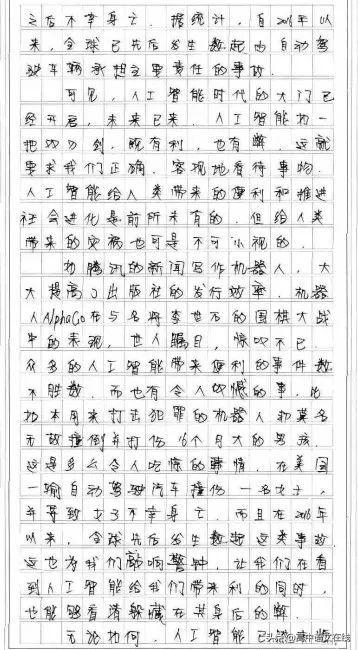 之后不幸身亡。据统计，自2016年以
来，全球已先后发生数起由自动驾
驶车辆承担主要责任的事故。
可见，人工智能时代的大门已
经开启，未来已来。人工智能如一
把双刃剑，既有利，也有弊，这就
要求我们正确、客观地看待事物。
人工智能给人类带来的便利和推进
社会进化是前所未有的，但给人类
带来的灾祸也可是不可小视的。
如腾讯的新闻写作机器人，大
大提高了出版社的发行效率。机器
人AlphaGo在与名将李世石的围棋大战
中的表现，世人瞩目，惊叹不已
众多的人工智能带来便利的事件数
不胜数。而也有令人叹憾的事，比
如本用来打击犯罪的机器人却莫名
无故撞倒并打伤16个月大的男孩，
这是多么令人吃惊的事情。在美国
一辆自动驾驶汽车撞伤一名女士，
并导致女子不幸身亡。而且在2016年
以来，全球先后发生数起这类事故
这也为我们敲响警钟，让我们在看
到人工智能给我们带来利的同时，
也能够看清躲藏在其身后的弊。
无论如何，人工智能已
头条@高中语文在线